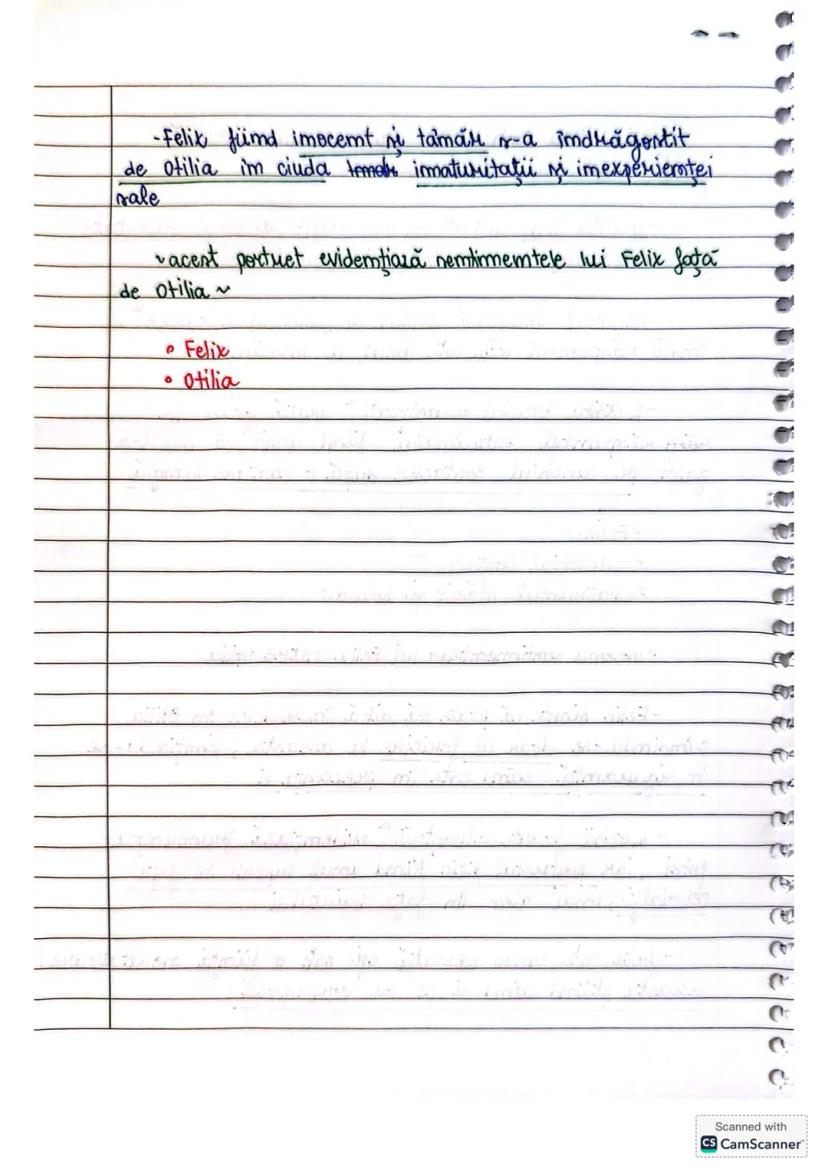 -Felix fiind inocent și tânăr s-a îndrăgostit
de Otilia în ciuda imaturității și inexperienței
sale
~acest portret evidențiază sentimentele lui Felix față
de Otilia~
Felix
Otilia
Scanned with
CS CamScanner